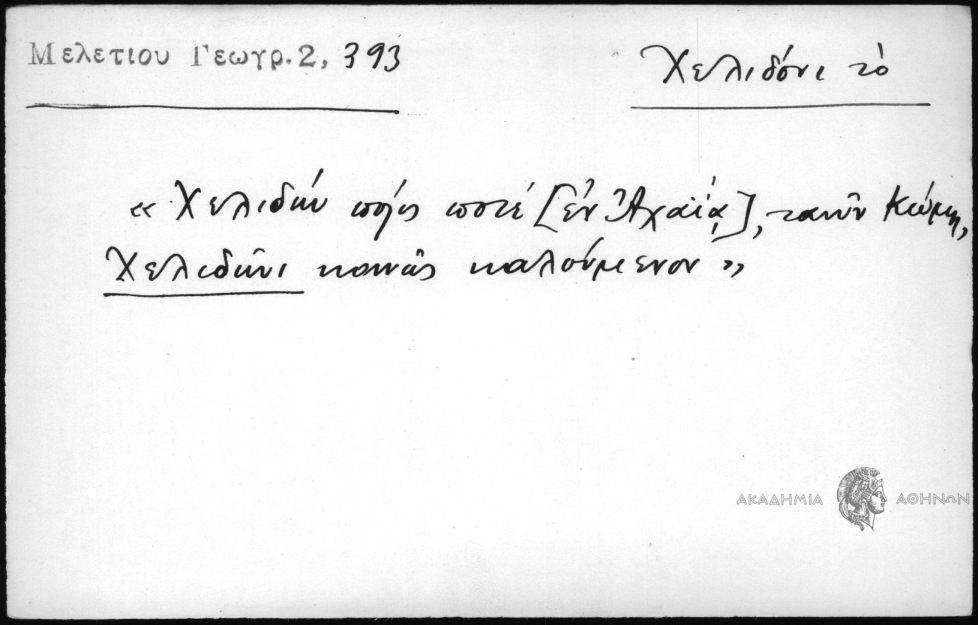 Μελετίου Γεωγρ. 2, 393
Χελιδόνι τὸ
« Χελιδών πόλις ποτέ [ἐν Ἀχαΐᾳ], τανῦν κώμη,
Χελιδῶνι κοινῶς καλούμενον »
ΑΚΑΔΗΜΙΑ ΑΘΗΝΩΝ